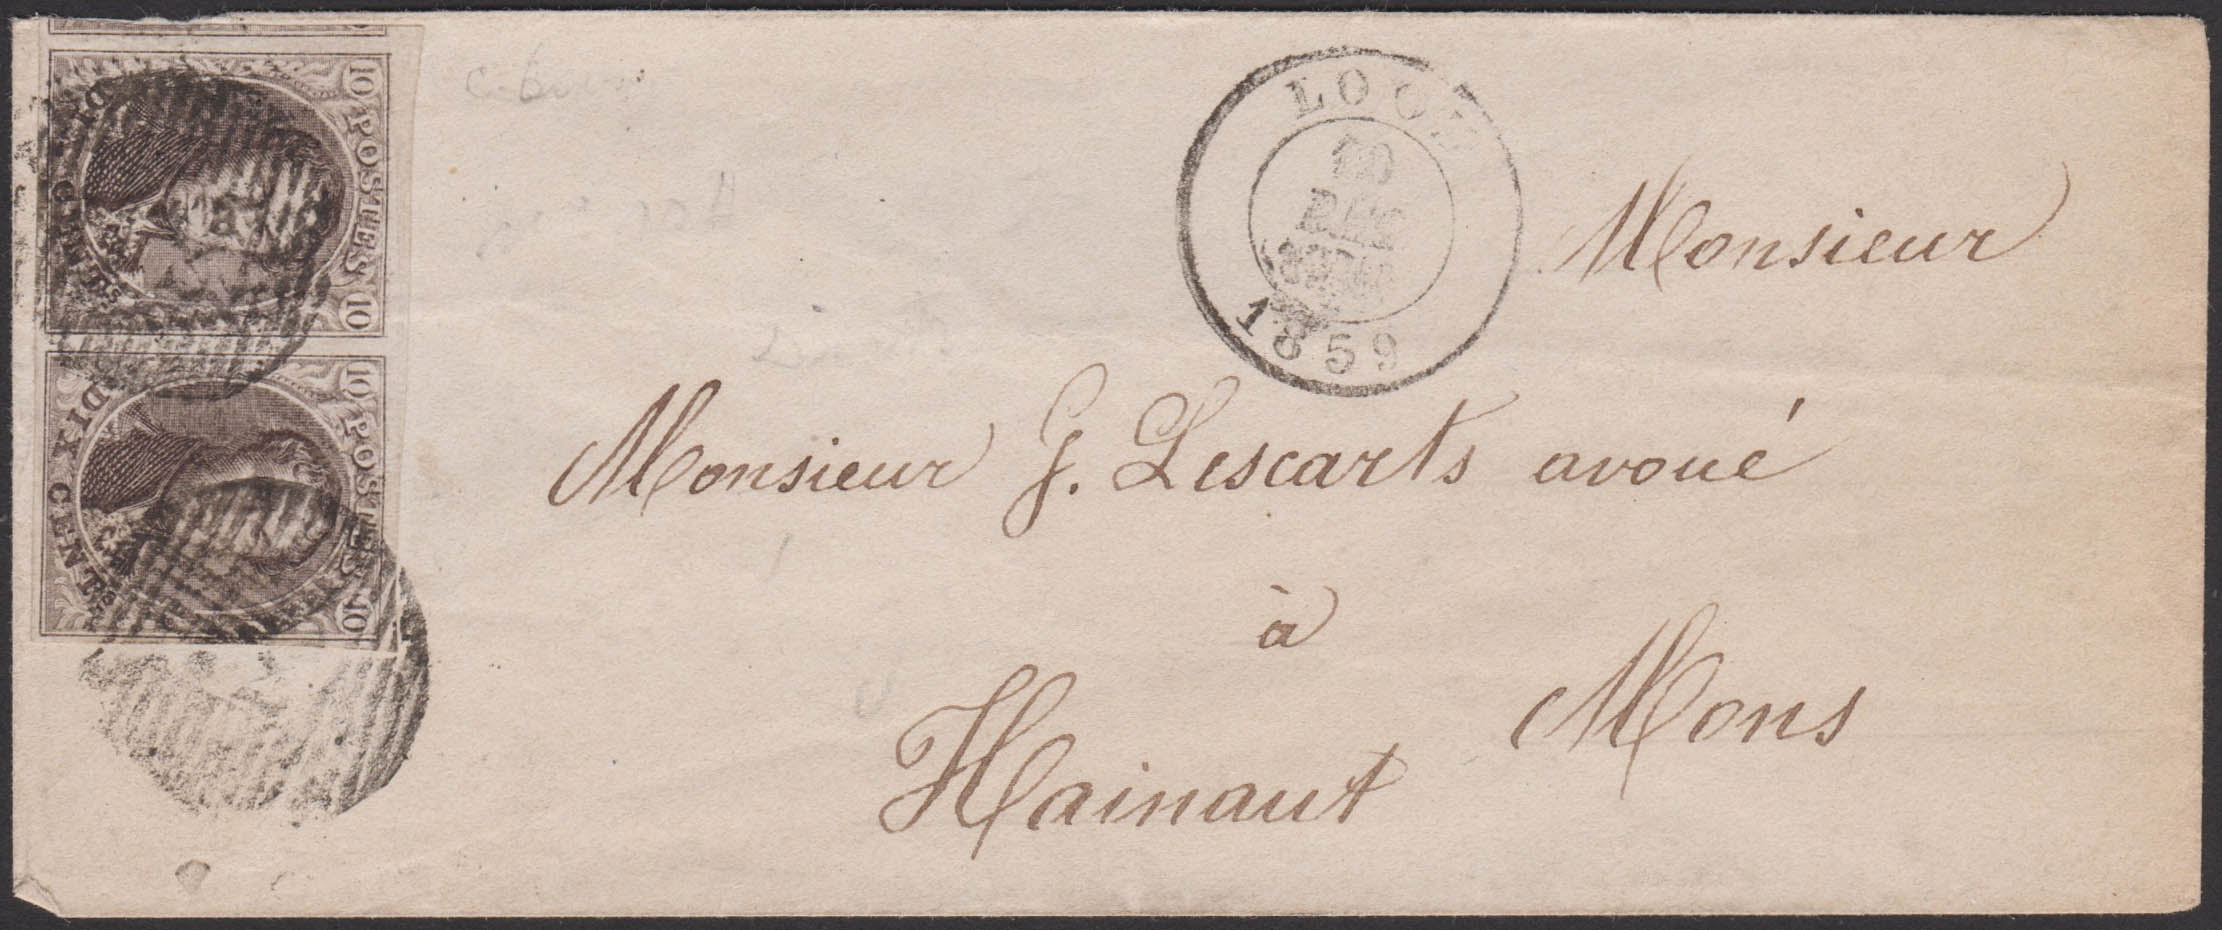 10 POSTES 10
DIX CENTS
10 POSTES 10
DIX CENTS
10
DEC
1859
Monsieur
Monsieur J. Lescarts avoué
à
Mons
Hainaut